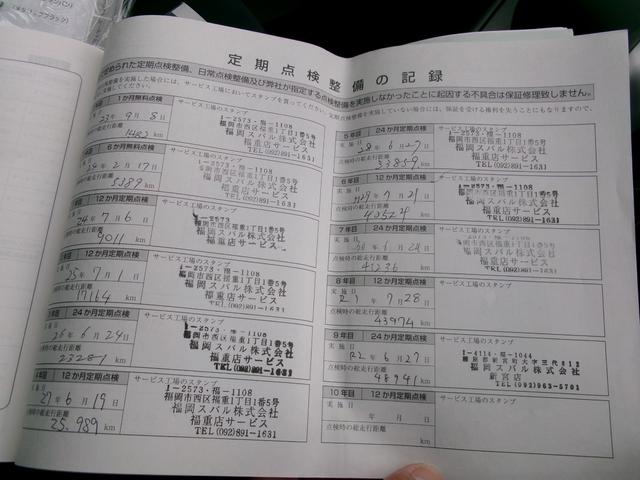 定期点検整備の記録
られた定期点検整備、日常点検整備及び弊社が指定する点検整備を実施しなかったことに起因する不具合は保証修理致しません。
1か月無料点検
サービス工場のスタンプ
23年9月8日
1482 km
1-2573-福-1108
福岡市西区福重1丁目1番5号
福岡スバル株式会社
福重店サービス
TEL(092)891-1631
6か月無料点検
サービス工場のスタンプ
24年2月17日
5389 km
1-2573-福-1108
福岡市西区福重1丁目1番5号
福岡スバル株式会社
福重店サービス
TEL(092)891-1631
12か月定期点検
サービス工場のスタンプ
24年7月6日
km
1-2573
福岡市西区福重1丁目1番5号
福岡スバル株式会社
福重店サービス
12か月定期点検
サービス工場のスタンプ
25年7月1日
17164 km
1-2573-福-1108
福岡市西区福重1丁目1番5号
福岡スバル株式会社
福重店サービス
TEL(092)891-1631
24か月定期点検
サービス工場のスタンプ
26年6月24日
23281 km
1-2573-福-1108
福岡市西区福重1丁目1番5号
福岡スバル株式会社
福重店サービス
TEL(092)891-1631
12か月定期点検
サービス工場のスタンプ
27年6月19日
点検時の総走行距離
25,989 km
1-2573-福-1108
福岡市西区福重1丁目1番5号
福岡スバル株式会社
福重店サービス
TEL(092)891-1631
5年目 24か月定期点検
サービス工場のスタンプ
実施日
28年6月27日
点検時の総走行距離
33859 km
1-2573-福-1108
福岡市西区福重1丁目1番5号
福岡スバル株式会社
福重店サービス
TEL(092)891-1631
6年目 12か月定期点検
サービス工場のスタンプ
実施日
29年7月21日
点検時の総走行距離
km
1-2573-福-1108
福岡市西区福重1丁目1番5号
福岡スバル株式会社
福重店サービス
TEL(092)891-1631
7年目 24か月定期点検
サービス工場のスタンプ
実施日
年6月24日
点検時の総走行距離
km
1-2573-福-1108
福岡市西区福重1丁目1番5号
福岡スバル株式会社
福重店サービス
TEL(092)891-1631
8年目 12か月定期点検
サービス工場のスタンプ
実施日
年7月28日
点検時の総走行距離
43974 km
9年目 24か月定期点検
サービス工場のスタンプ
実施日
R2年6月27日
点検時の総走行距離
48941 km
1-4114-福-1044
福岡スバル株式会社
新宮店
TEL(092)963-5701
10年目 12か月定期点検
サービス工場のスタンプ
実施日
年 月 日
点検時の総走行距離
km